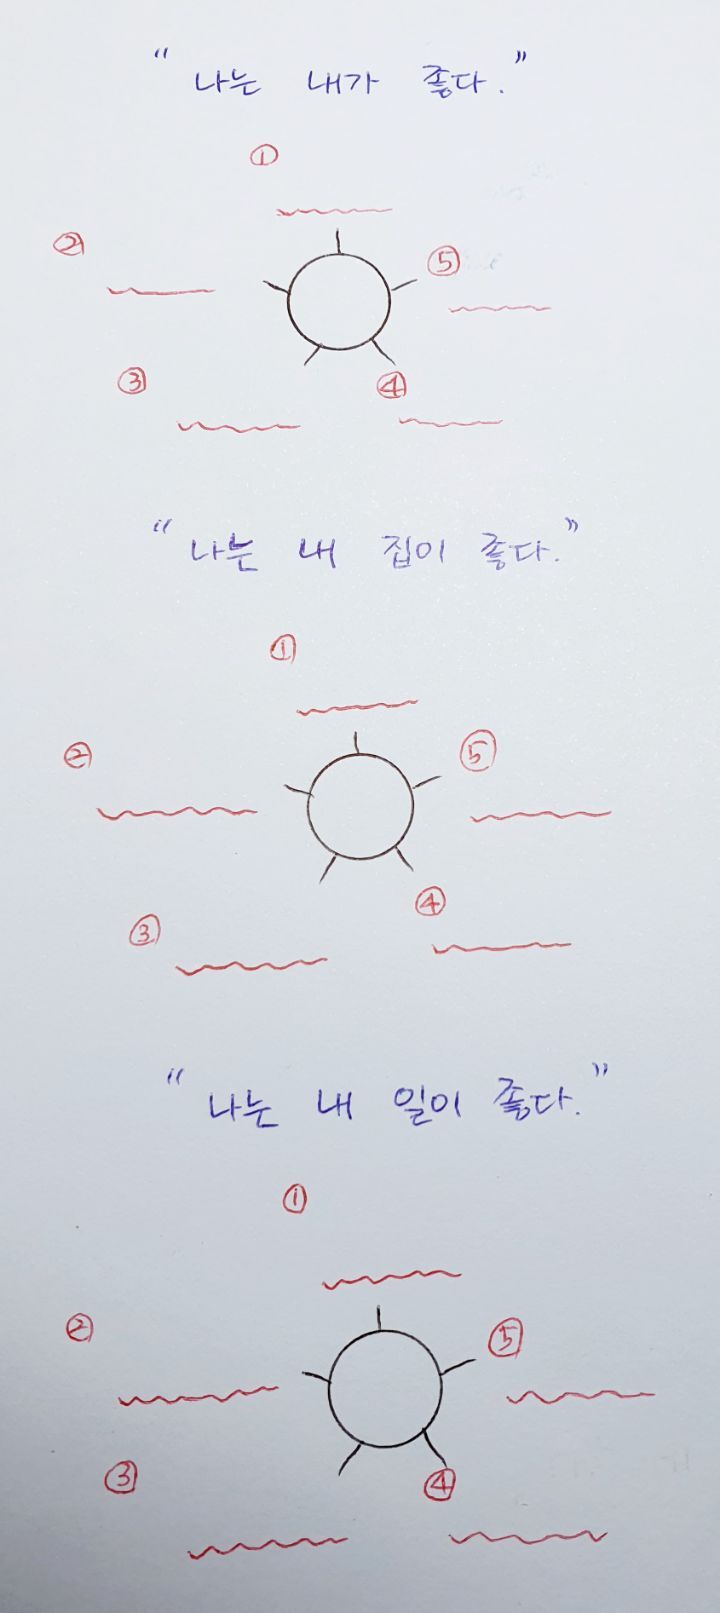 "나는 내가 좋다."
①
②
⑤
③
④
"나는 내 집이 좋다."
①
②
⑤
④
③
"나는 내 일이 좋다."
①
②
⑤
③
④